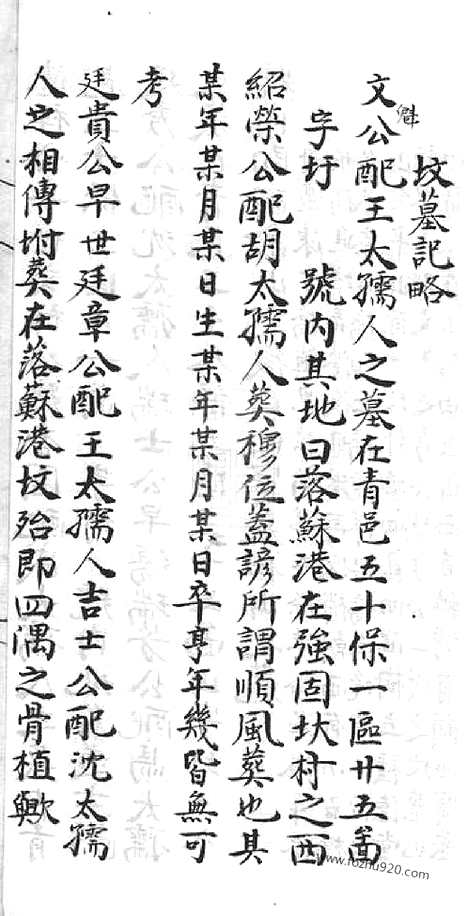 墳墓記略
文魁公配王太孺人之墓在青邑五十保一區廿五啚
字圩 號內其地曰落蘇港在強固圦村之西
紹榮公配胡太孺人葬穆位蓋諺所謂順風葬也其
某年某月某日生某年某月某日卒享年幾皆無可
考
廷貴公早世廷章公配王太孺人吉士公配沈太孺
人之相傳坿葬在落蘇港墳殆即四隅之骨植歟
www.fozhu920.com